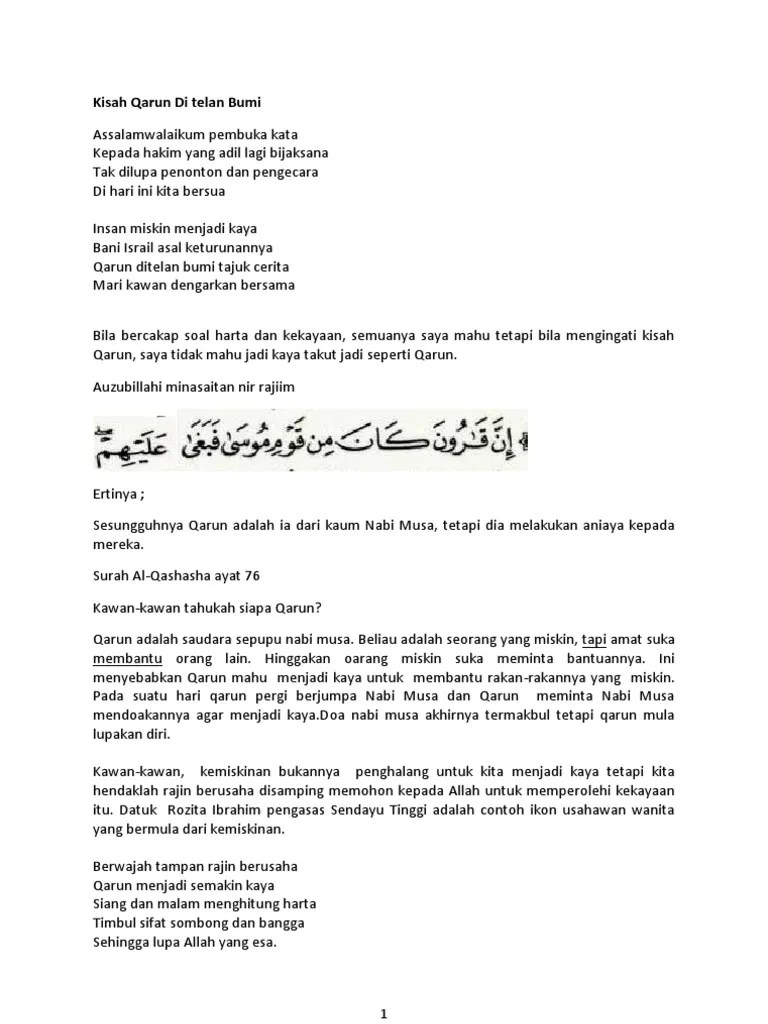 Kisah Qarun Di telan Bumi
Assalamwalaikum pembuka kata
Kepada hakim yang adil lagi bijaksana
Tak dilupa penonton dan pengecara
Di hari ini kita bersua
Insan miskin menjadi kaya
Bani Israil asal keturunannya
Qarun ditelan bumi tajuk cerita
Mari kawan dengarkan bersama
Bila bercakap soal harta dan kekayaan, semuanya saya mahu tetapi bila mengingati kisah
Qarun, saya tidak mahu jadi kaya takut jadi seperti Qarun.
Auzubillahi minasaitan nir rajiim
إِنَّ قَـٰرُونَ كَانَ مِن قَوْمِ مُوسَىٰ فَبَغَىٰ عَلَيْهِمْ ۖ
Ertinya ;
Sesungguhnya Qarun adalah ia dari kaum Nabi Musa, tetapi dia melakukan aniaya kepada
mereka.
Surah Al-Qashasha ayat 76
Kawan-kawan tahukah siapa Qarun?
Qarun adalah saudara sepupu nabi musa. Beliau adalah seorang yang miskin, tapi amat suka
membantu orang lain. Hinggakan oarang miskin suka meminta bantuannya. Ini
menyebabkan Qarun mahu menjadi kaya untuk membantu rakan-rakannya yang miskin.
Pada suatu hari qarun pergi berjumpa Nabi Musa dan Qarun meminta Nabi Musa
mendoakannya agar menjadi kaya.Doa nabi musa akhirnya termakbul tetapi qarun mula
lupakan diri.
Kawan-kawan, kemiskinan bukannya penghalang untuk kita menjadi kaya tetapi kita
hendaklah rajin berusaha disamping memohon kepada Allah untuk memperolehi kekayaan
itu. Datuk Rozita Ibrahim pengasas Sendayu Tinggi adalah contoh ikon usahawan wanita
yang bermula dari kemiskinan.
Berwajah tampan rajin berusaha
Qarun menjadi semakin kaya
Siang dan malam menghitung harta
Timbul sifat sombong dan bangga
Sehingga lupa Allah yang esa.
1